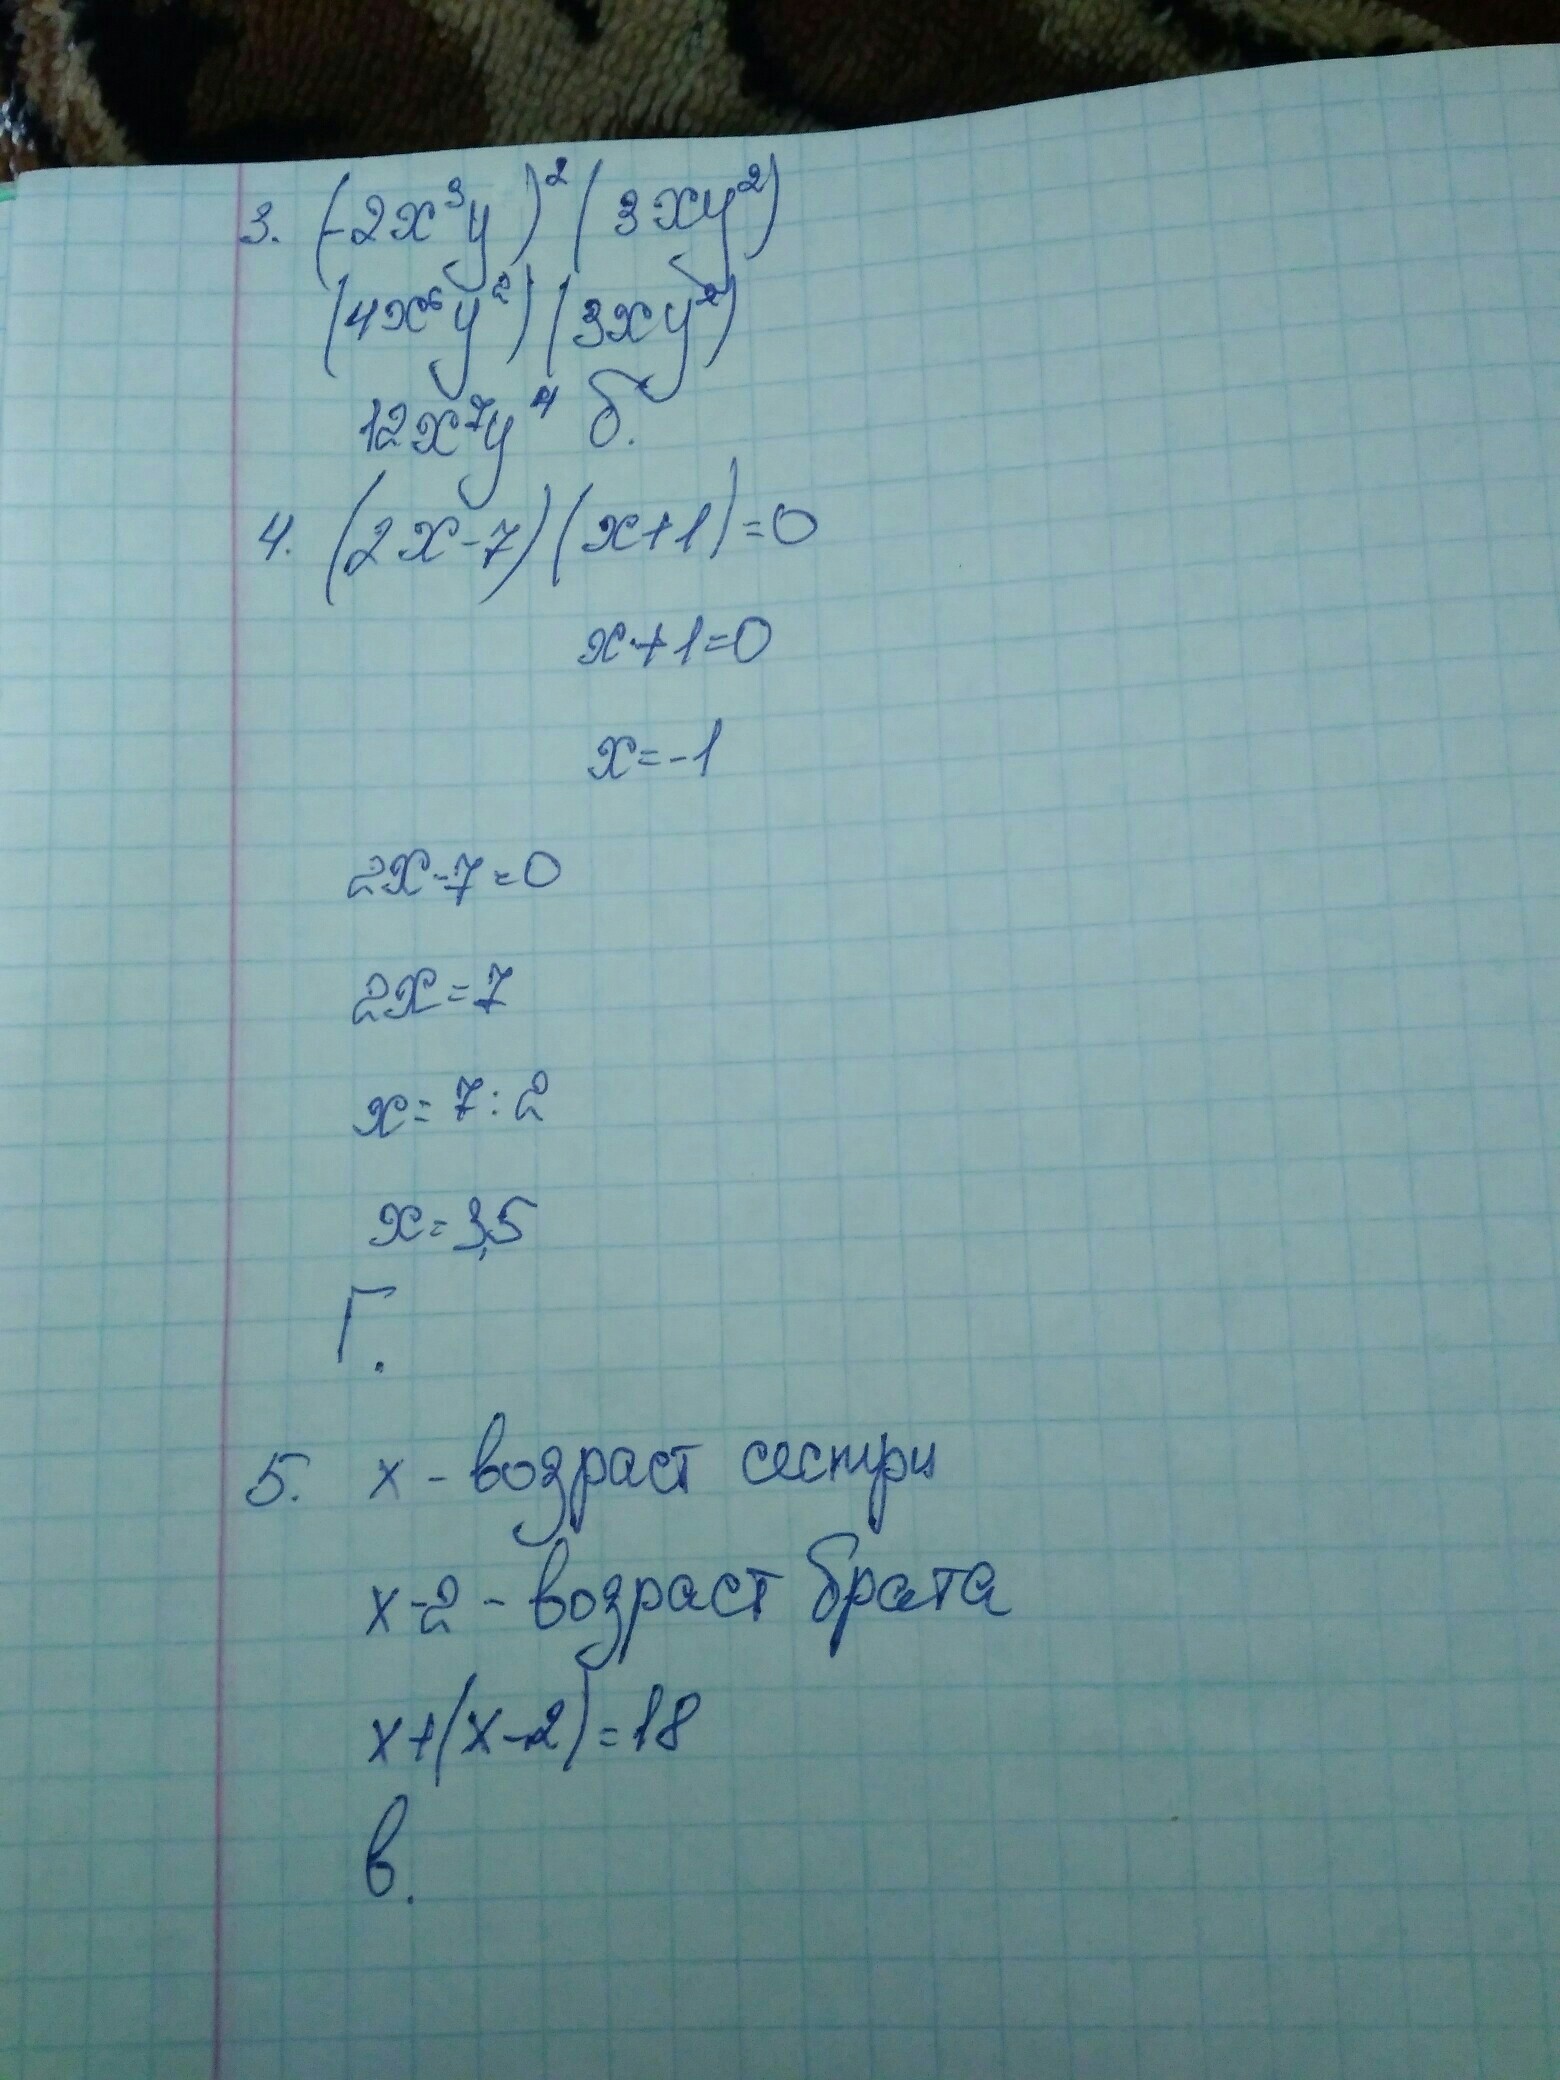 3. (-2x³y)²(3xy²)
(4x⁶y²)(3xy²)
12x⁷y⁴ б.
4. (2x-7)(x+1)=0
x+1=0
x=-1
2x-7=0
2x=7
x=7:2
x=3,5
Г.
5. x - возраст сестри
x-2 - возраст брата
x+(x-2)=18
в.